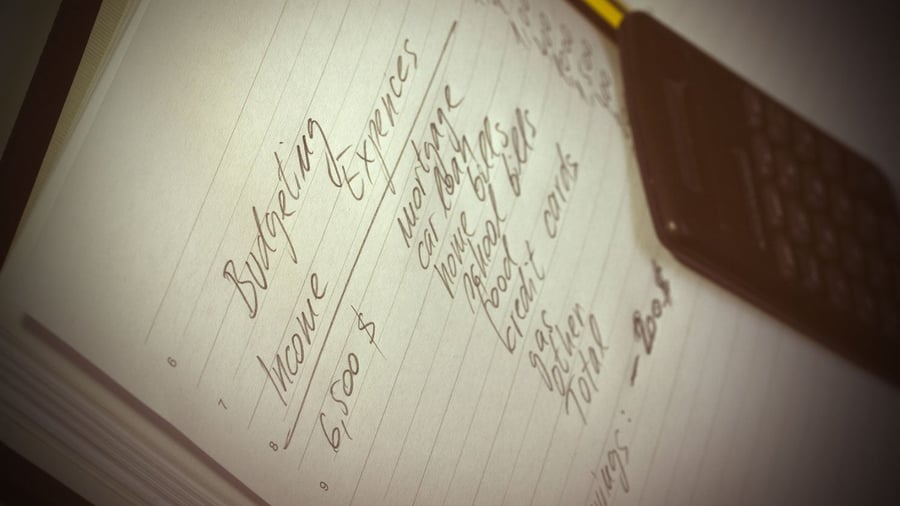 Budgeting
Income Expences
6,500 $ mortgage
car loan
home bills
school bills
food
credit cards
gas
other
Total
: - 200$
6
7
8
9